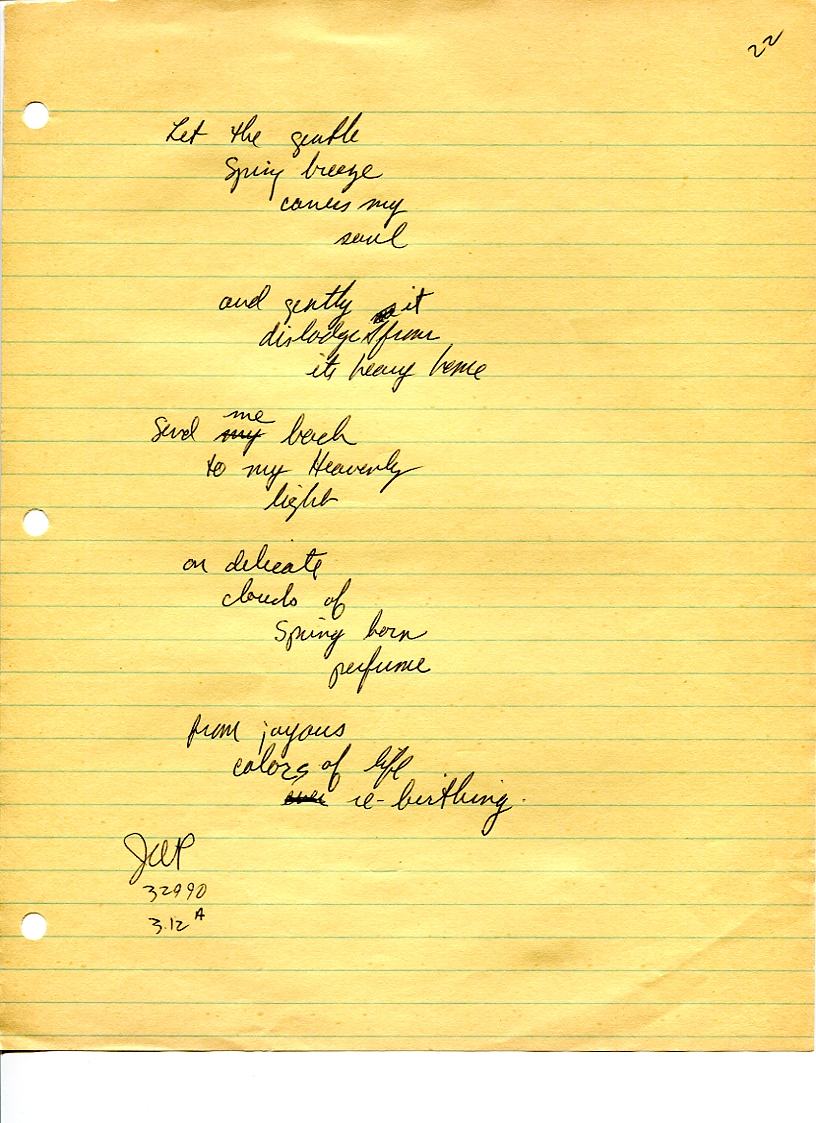 22
Let the gentle
Spring breeze
caress my
soul
and gently it
dislodge from
its heavy home
Send my me back
to my Heavenly
light
on delicate
clouds of
Spring born
perfume
from joyous
colors of life
ever re-birthing.
32990
3.12 A